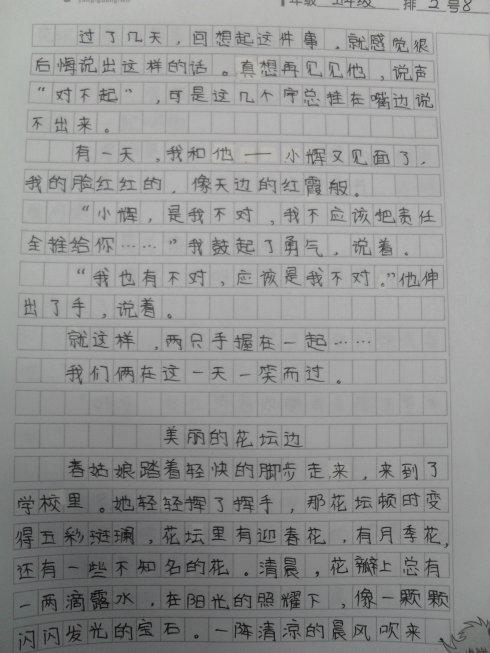 年级 五年级 排 2 号8
过了几天，回想起这件事，就感觉很
后悔说出这样的话。真想再见见他，说声
“对不起”，可是这几个字总挂在嘴边说
不出来。
有一天，我和他——小辉又见面了，
我的脸红红的，像天边的红霞般。
“小辉，是我不对，我不应该把责任
全推给你……”我鼓起了勇气，说着。
“我也有不对，应该是我不对。”他伸
出了手，说着。
就这样，两只手握在一起……
我们俩在这一天一笑而过。
美丽的花坛边
春姑娘踏着轻快的脚步走来，来到了
学校里。她轻轻挥了挥手，那花坛顿时变
得五彩斑斓，花坛里有迎春花，有月季花，
还有一些不知名的花。清晨，花瓣上总有
一两滴露水，在阳光的照耀下，像一颗颗
闪闪发光的宝石。一阵清凉的晨风吹来